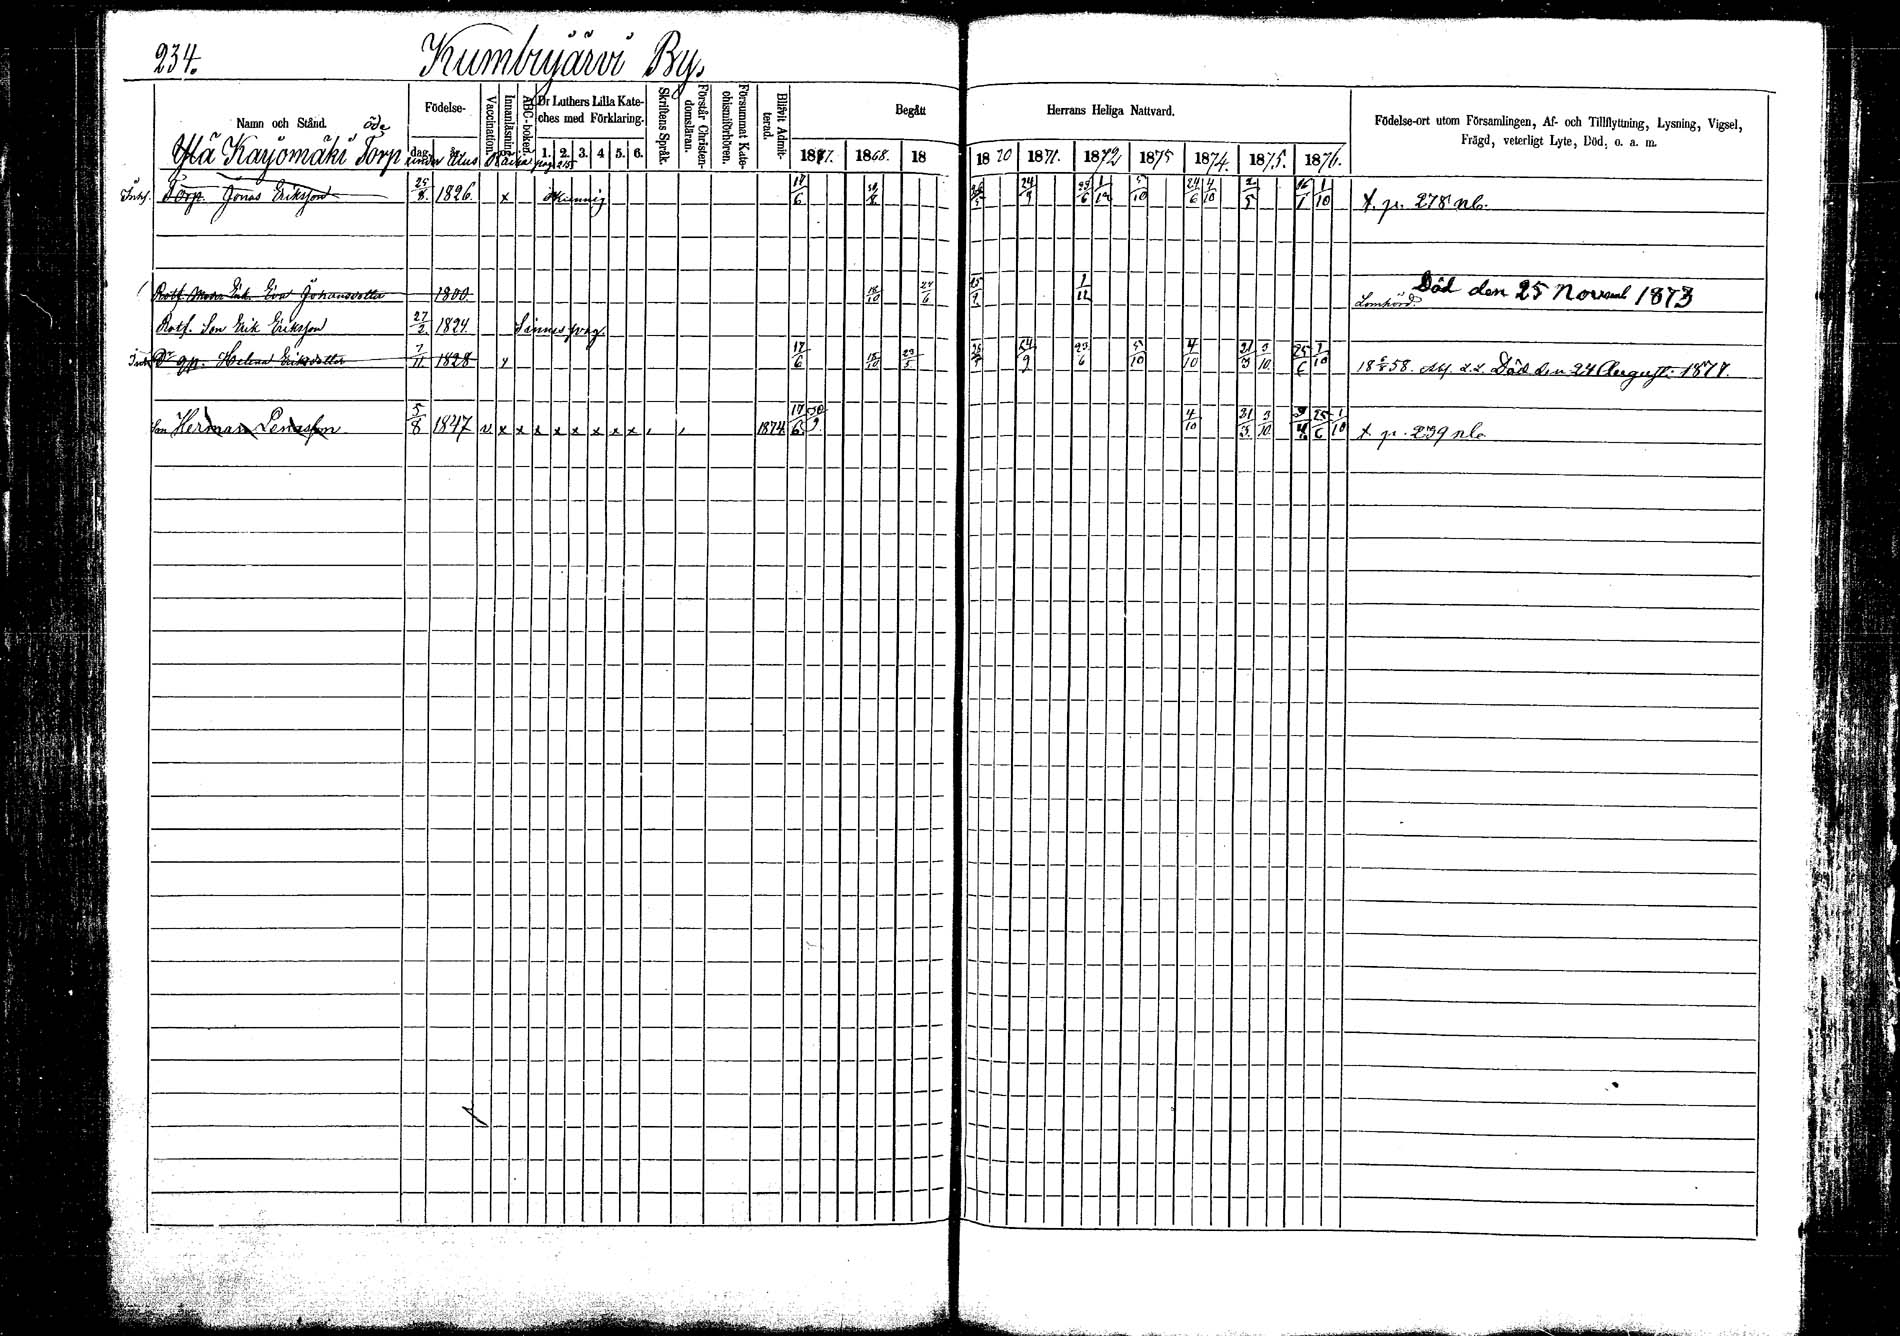 234. Kumbujärvi By.
Namn och Stånd.
Födelse-
dag.
år.
Vaccination.
Innanläsning.
ABC-boken.
Dr Luthers Lilla Kate-
ches med Förklaring.
1. 2. 3. 4 5. 6.
Skriftens Språk.
Förstår Christen-
domsläran.
Försummat Kate-
chismiförhören.
Blifvit Admit-
terad.
Begått Herrans Heliga Nattvard.
1867. 1868. 18 1870 1871. 1872 1873 1874. 1875. 1876.
Födelse-ort utom Församlingen, Af- och Tillflyttning, Lysning, Vigsel,
Frägd, veterligt Lyte, Död, o. a. m.
öde
Ylä Karjomäki Torp under pag. 215
Inhs. Torp. Jonas Eriksson 25/8. 1826. x 17/6 24/9 23/6 1/12 5/10 24/6 4/10 2/5 1/10 t. p. 278 nb.
Eva Johansdotter 1800. 18/10 24/6 1/12 Lomhörd. Död den 25 Novemb 1873
Rotf. Son Erik Eriksson 27/2. 1824. Sinnes svag.
Helena Eriksdotter 7/11. 1828 x 17/6 18/10 24/9 23/6 5/10 4/10 21/3 3/10 25/6 1/10 Död den 24 August: 1877.
Son Herman Lenasson 5/8 1847 v x x x x x x x x , , 1874 17/6 30/9 4/10 21/3. 3/10. 25/6 1/10 t. p. 239 nb.